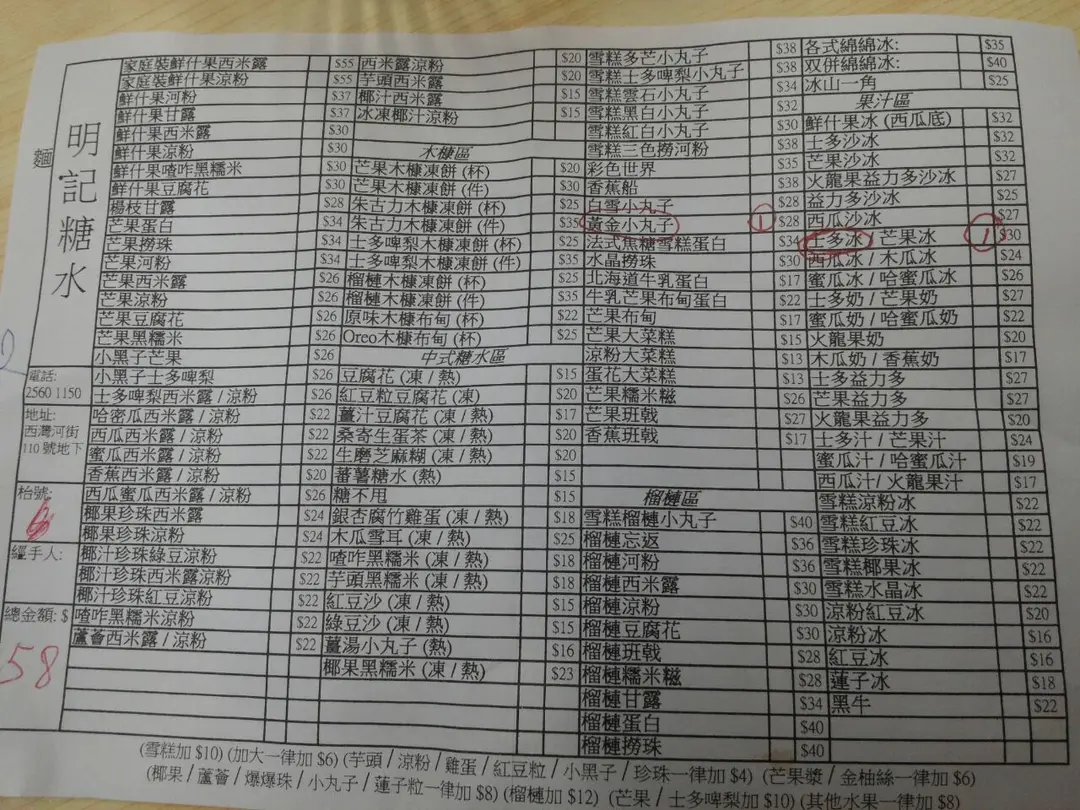 明記糖水
麵
電話:
2560 1150
地址:
西灣河街
110 號地下
枱號:
6
經手人:
總金額: $
58
家庭裝鮮什果西米露 $55
家庭裝鮮什果涼粉 $55
鮮什果河粉 $37
鮮什果甘露 $37
鮮什果西米露 $30
鮮什果涼粉 $30
鮮什果喳咋黑糯米 $30
鮮什果豆腐花 $30
楊枝甘露 $28
芒果蛋白 $34
芒果撈珠 $34
芒果河粉 $34
芒果西米露 $26
芒果涼粉 $26
芒果豆腐花 $26
芒果黑糯米 $26
小黑子芒果 $26
小黑子士多啤梨 $26
士多啤梨西米露 / 涼粉 $26
哈密瓜西米露 / 涼粉 $22
西瓜西米露 / 涼粉 $22
蜜瓜西米露 / 涼粉 $22
香蕉西米露 / 涼粉 $20
西瓜蜜瓜西米露 / 涼粉 $26
椰果珍珠西米露 $24
椰果珍珠涼粉 $24
椰汁珍珠綠豆涼粉 $22
椰汁珍珠西米露涼粉 $22
椰汁珍珠紅豆涼粉 $22
喳咋黑糯米涼粉 $22
蘆薈西米露 / 涼粉 $22
西米露涼粉 $20
芋頭西米露 $20
椰汁西米露 $15
冰凍椰汁涼粉 $15
木糠區
芒果木糠凍餅 (杯) $20
芒果木糠凍餅 (件) $30
朱古力木糠凍餅 (杯) $25
朱古力木糠凍餅 (件) $35
士多啤梨木糠凍餅 (杯) $25
士多啤梨木糠凍餅 (件) $35
榴槤木糠凍餅 (杯) $25
榴槤木糠凍餅 (件) $35
原味木糠布甸 (杯) $22
Oreo木糠布甸 (杯) $25
中式糖水區
豆腐花 (凍 / 熱) $15
紅豆粒豆腐花 (凍) $20
薑汁豆腐花 (凍 / 熱) $17
桑寄生蛋茶 (凍 / 熱) $20
生磨芝麻糊 (凍 / 熱) $20
蕃薯糖水 (熱) $15
糖不甩 $15
銀杏腐竹雞蛋 (凍 / 熱) $18
木瓜雪耳 (凍 / 熱) $25
喳咋黑糯米 (凍 / 熱) $18
芋頭黑糯米 (凍 / 熱) $18
紅豆沙 (凍 / 熱) $15
綠豆沙 (凍 / 熱) $15
薑湯小丸子 (熱) $16
椰果黑糯米 (凍 / 熱) $23
雪糕多芒小丸子 $38
雪糕士多啤梨小丸子 $38
雪糕雲石小丸子 $34
雪糕黑白小丸子 $32
雪糕紅白小丸子 $30
雪糕三色撈河粉 $38
彩色世界 $35
香蕉船 $38
白雪小丸子 $28
黃金小丸子 1 $28
法式焦糖雪糕蛋白 $34
水晶撈珠 $30
北海道牛乳蛋白 $17
牛乳芒果布甸蛋白 $22
芒果布甸 $17
芒果大菜糕 $15
涼粉大菜糕 $13
蛋花大菜糕 $13
芒果糯米糍 $26
芒果班戟 $27
香蕉班戟 $17
榴槤區
雪糕榴槤小丸子 $40
榴槤忘返 $36
榴槤河粉 $36
榴槤西米露 $30
榴槤涼粉 $30
榴槤豆腐花 $30
榴槤班戟 $28
榴槤糯米糍 $28
榴槤甘露 $34
榴槤蛋白 $40
榴槤撈珠 $40
各式綿綿冰: $35
双併綿綿冰: $40
冰山一角 $25
果汁區
鮮什果冰 (西瓜底) $32
士多沙冰 $32
芒果沙冰 $32
火龍果益力多沙冰 $27
益力多沙冰 $25
西瓜沙冰 $27
士多冰 / 芒果冰 1 $30
西瓜冰 / 木瓜冰 $24
蜜瓜冰 / 哈蜜瓜冰 $26
士多奶 / 芒果奶 $27
蜜瓜奶 / 哈蜜瓜奶 $22
火龍果奶 $20
木瓜奶 / 香蕉奶 $17
士多益力多 $27
芒果益力多 $27
火龍果益力多 $20
士多汁 / 芒果汁 $24
蜜瓜汁 / 哈蜜瓜汁 $19
西瓜汁 / 火龍果汁 $17
雪糕涼粉冰 $22
雪糕紅豆冰 $22
雪糕珍珠冰 $22
雪糕椰果冰 $22
雪糕水晶冰 $22
涼粉紅豆冰 $20
涼粉冰 $16
紅豆冰 $16
蓮子冰 $18
黑牛 $22
(雪糕加 $10) (加大一律加 $6) (芋頭 / 涼粉 / 雞蛋 / 紅豆粒 / 小黑子 / 珍珠一律加 $4) (芒果漿 / 金柚絲一律加 $6)
(椰果 / 蘆薈 / 爆爆珠 / 小丸子 / 蓮子粒一律加 $8) (榴槤加 $12) (芒果 / 士多啤梨加 $10) (其他水果一律加 $8)